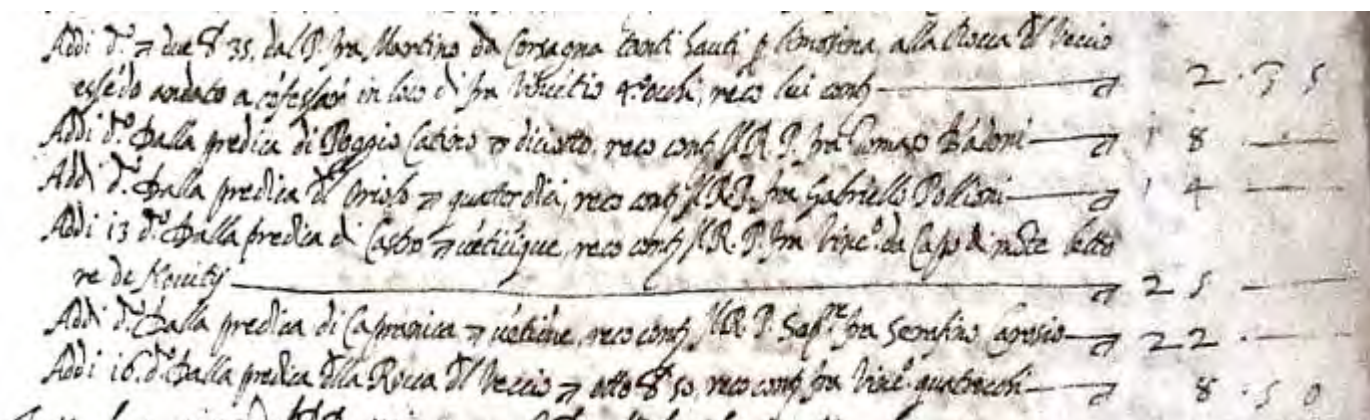 Addi d.º ∇ due & 35. dal P. fra Martino da Corsagna tanti hauti p limosina, alla Rocca d'l Veccio
essẽdo andato a cõfessar in loco di fra Vincẽtio 4.ºochi, reco lui contj 2 · 3 5
Addi d.º dalla predica di Poggio Catino ∇ diciotto, reco contj M.R.P. fra Tomaso 1 8 · —
Addi d.º dalla predica d'l Oriolo ∇ quatordici, reco contj M.R.P. fra Gabriello 1 4 —
Addi 13 d.º dalla predica di Castro ∇ vẽticĩque, reco contj M.R.P. fra Vinc.º da Capo di mõte letto
re de Novitij 2 5 —
Addi d.º dalla predica di Capranica ∇ vẽtidue, reco contj M.R.P. fra Serafino 2 2 · —
Addi 16 d.º dalla predica d'lla Rocca d'l Veccio ∇ otto & 50, reco contj fra Vinc.º quatrocchi 8 · 5 0